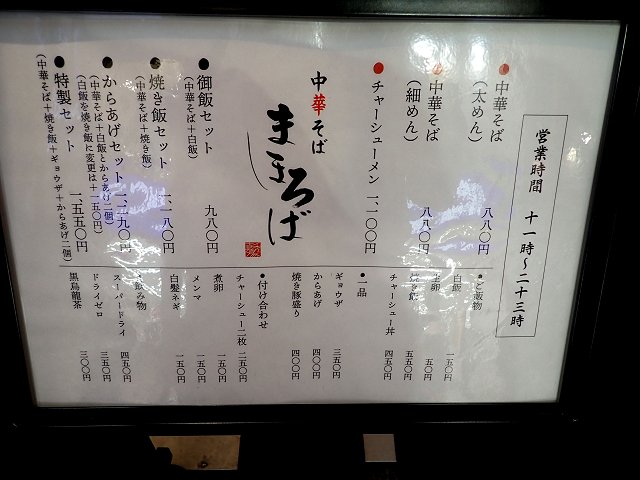 営業時間 十一時〜二十三時
●中華そば
（太めん） 八八〇円
●中華そば
（細めん） 八八〇円
●チャーシューメン 一、一〇〇円
中華そば
まほろば
●御飯セット
（中華そば＋白飯） 九八〇円
●焼き飯セット
（中華そば＋焼き飯） 一、一八〇円
●からあげセット 一、二九〇円
（中華そば＋白飯とからあげ二個）
（白飯を焼き飯に変更は＋一五〇円）
●特製セット 一、五五〇円
（中華そば＋焼き飯＋ギョウザ＋からあげ二個）
●ご飯物
白飯 一五〇円
生卵 五〇円
焼き飯 五五〇円
チャーシュー丼 四五〇円
●一品
ギョウザ 三五〇円
からあげ 四〇〇円
焼き豚盛り 四〇〇円
●付け合わせ
チャーシュー二枚 二五〇円
煮卵 一五〇円
メンマ 一五〇円
白髪ネギ 一五〇円
飲み物
スーパードライ 四五〇円
ドライゼロ 三五〇円
黒烏龍茶 三〇〇円